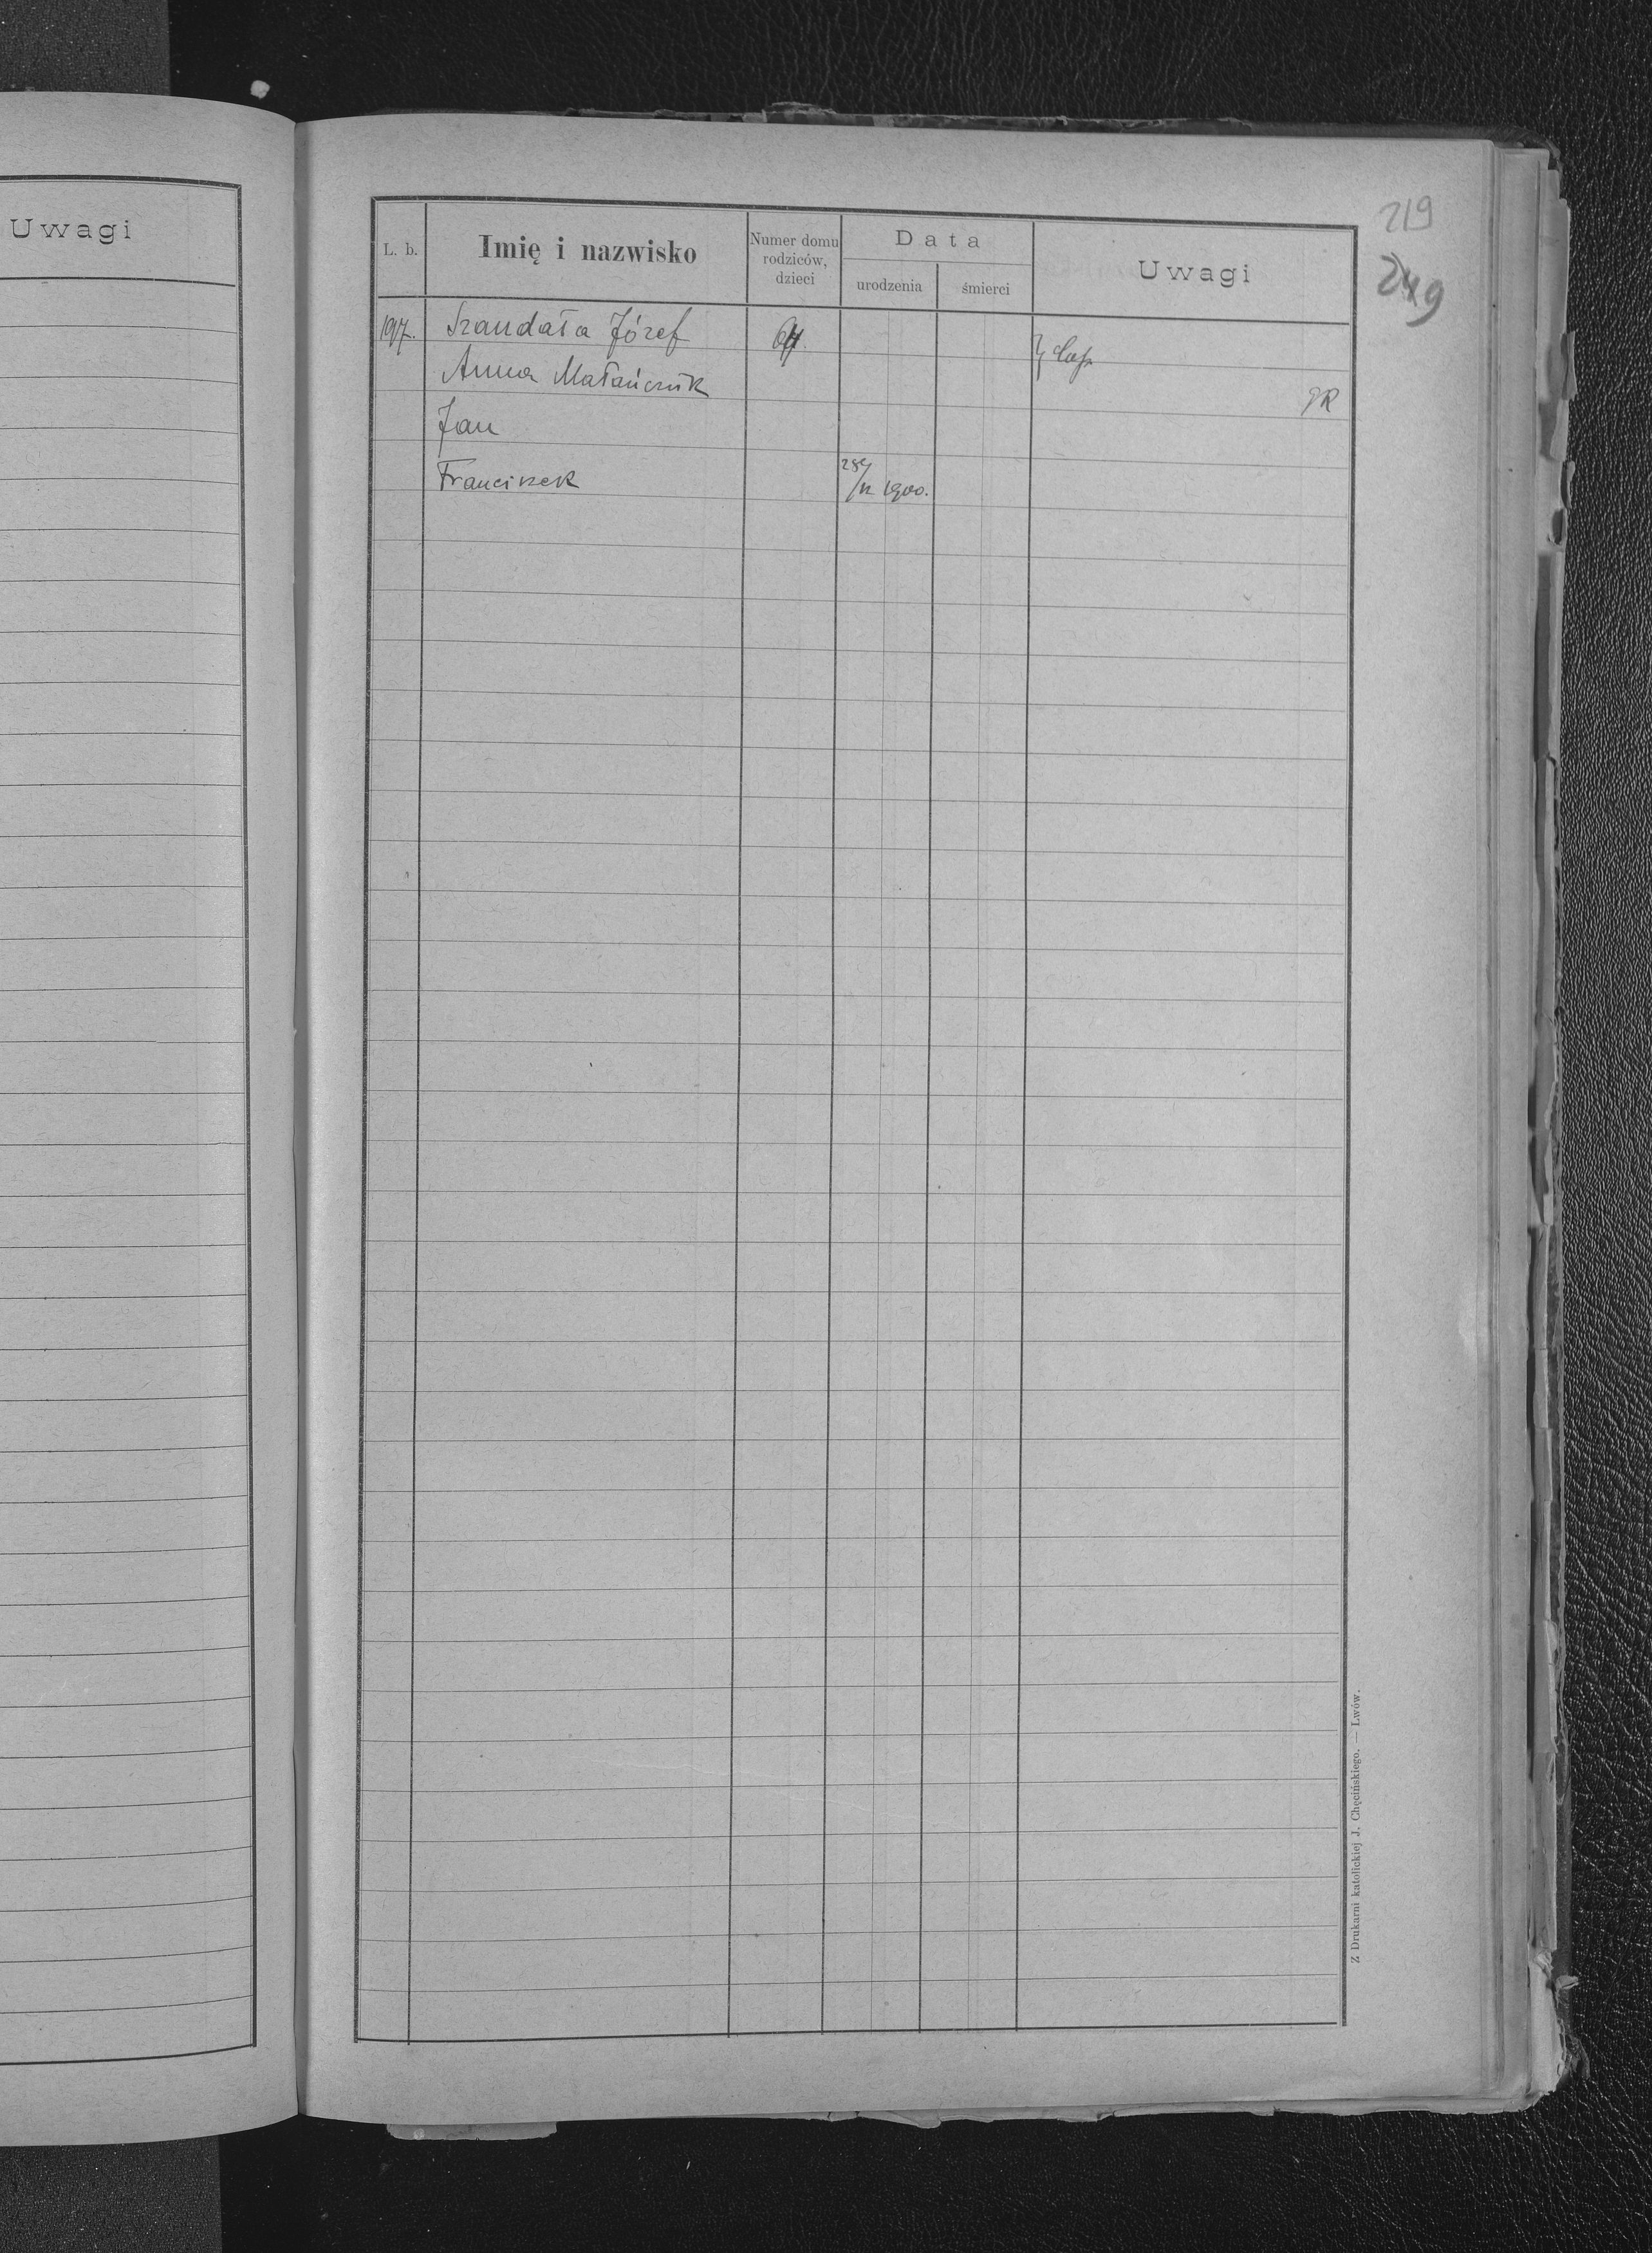 Uwagi
219
249
L. b.
Imię i nazwisko
Numer domu
rodziców,
dzieci
Data
urodzenia
śmierci
Uwagi
197. Szandała Józef 64.
Anna Małańczuk
Jan
Franciszek 28/12 1900.
Z Drukarni katolickiej J. Chęcińskiego. — Lwów.